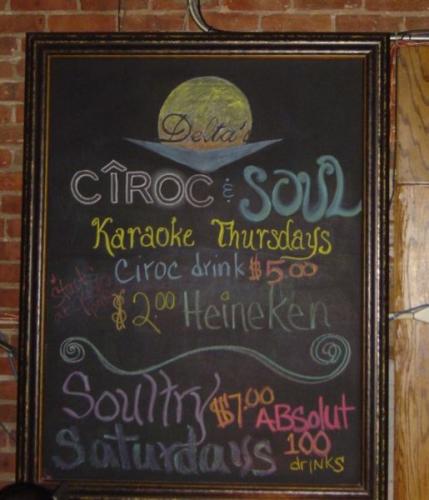 Delta's
CÎROC & SOUL
Karaoke Thursdays
Ciroc drink $5.00
$2.00 Heineken
Soultry $7.00 ABSolut
Saturdays 100
drinks